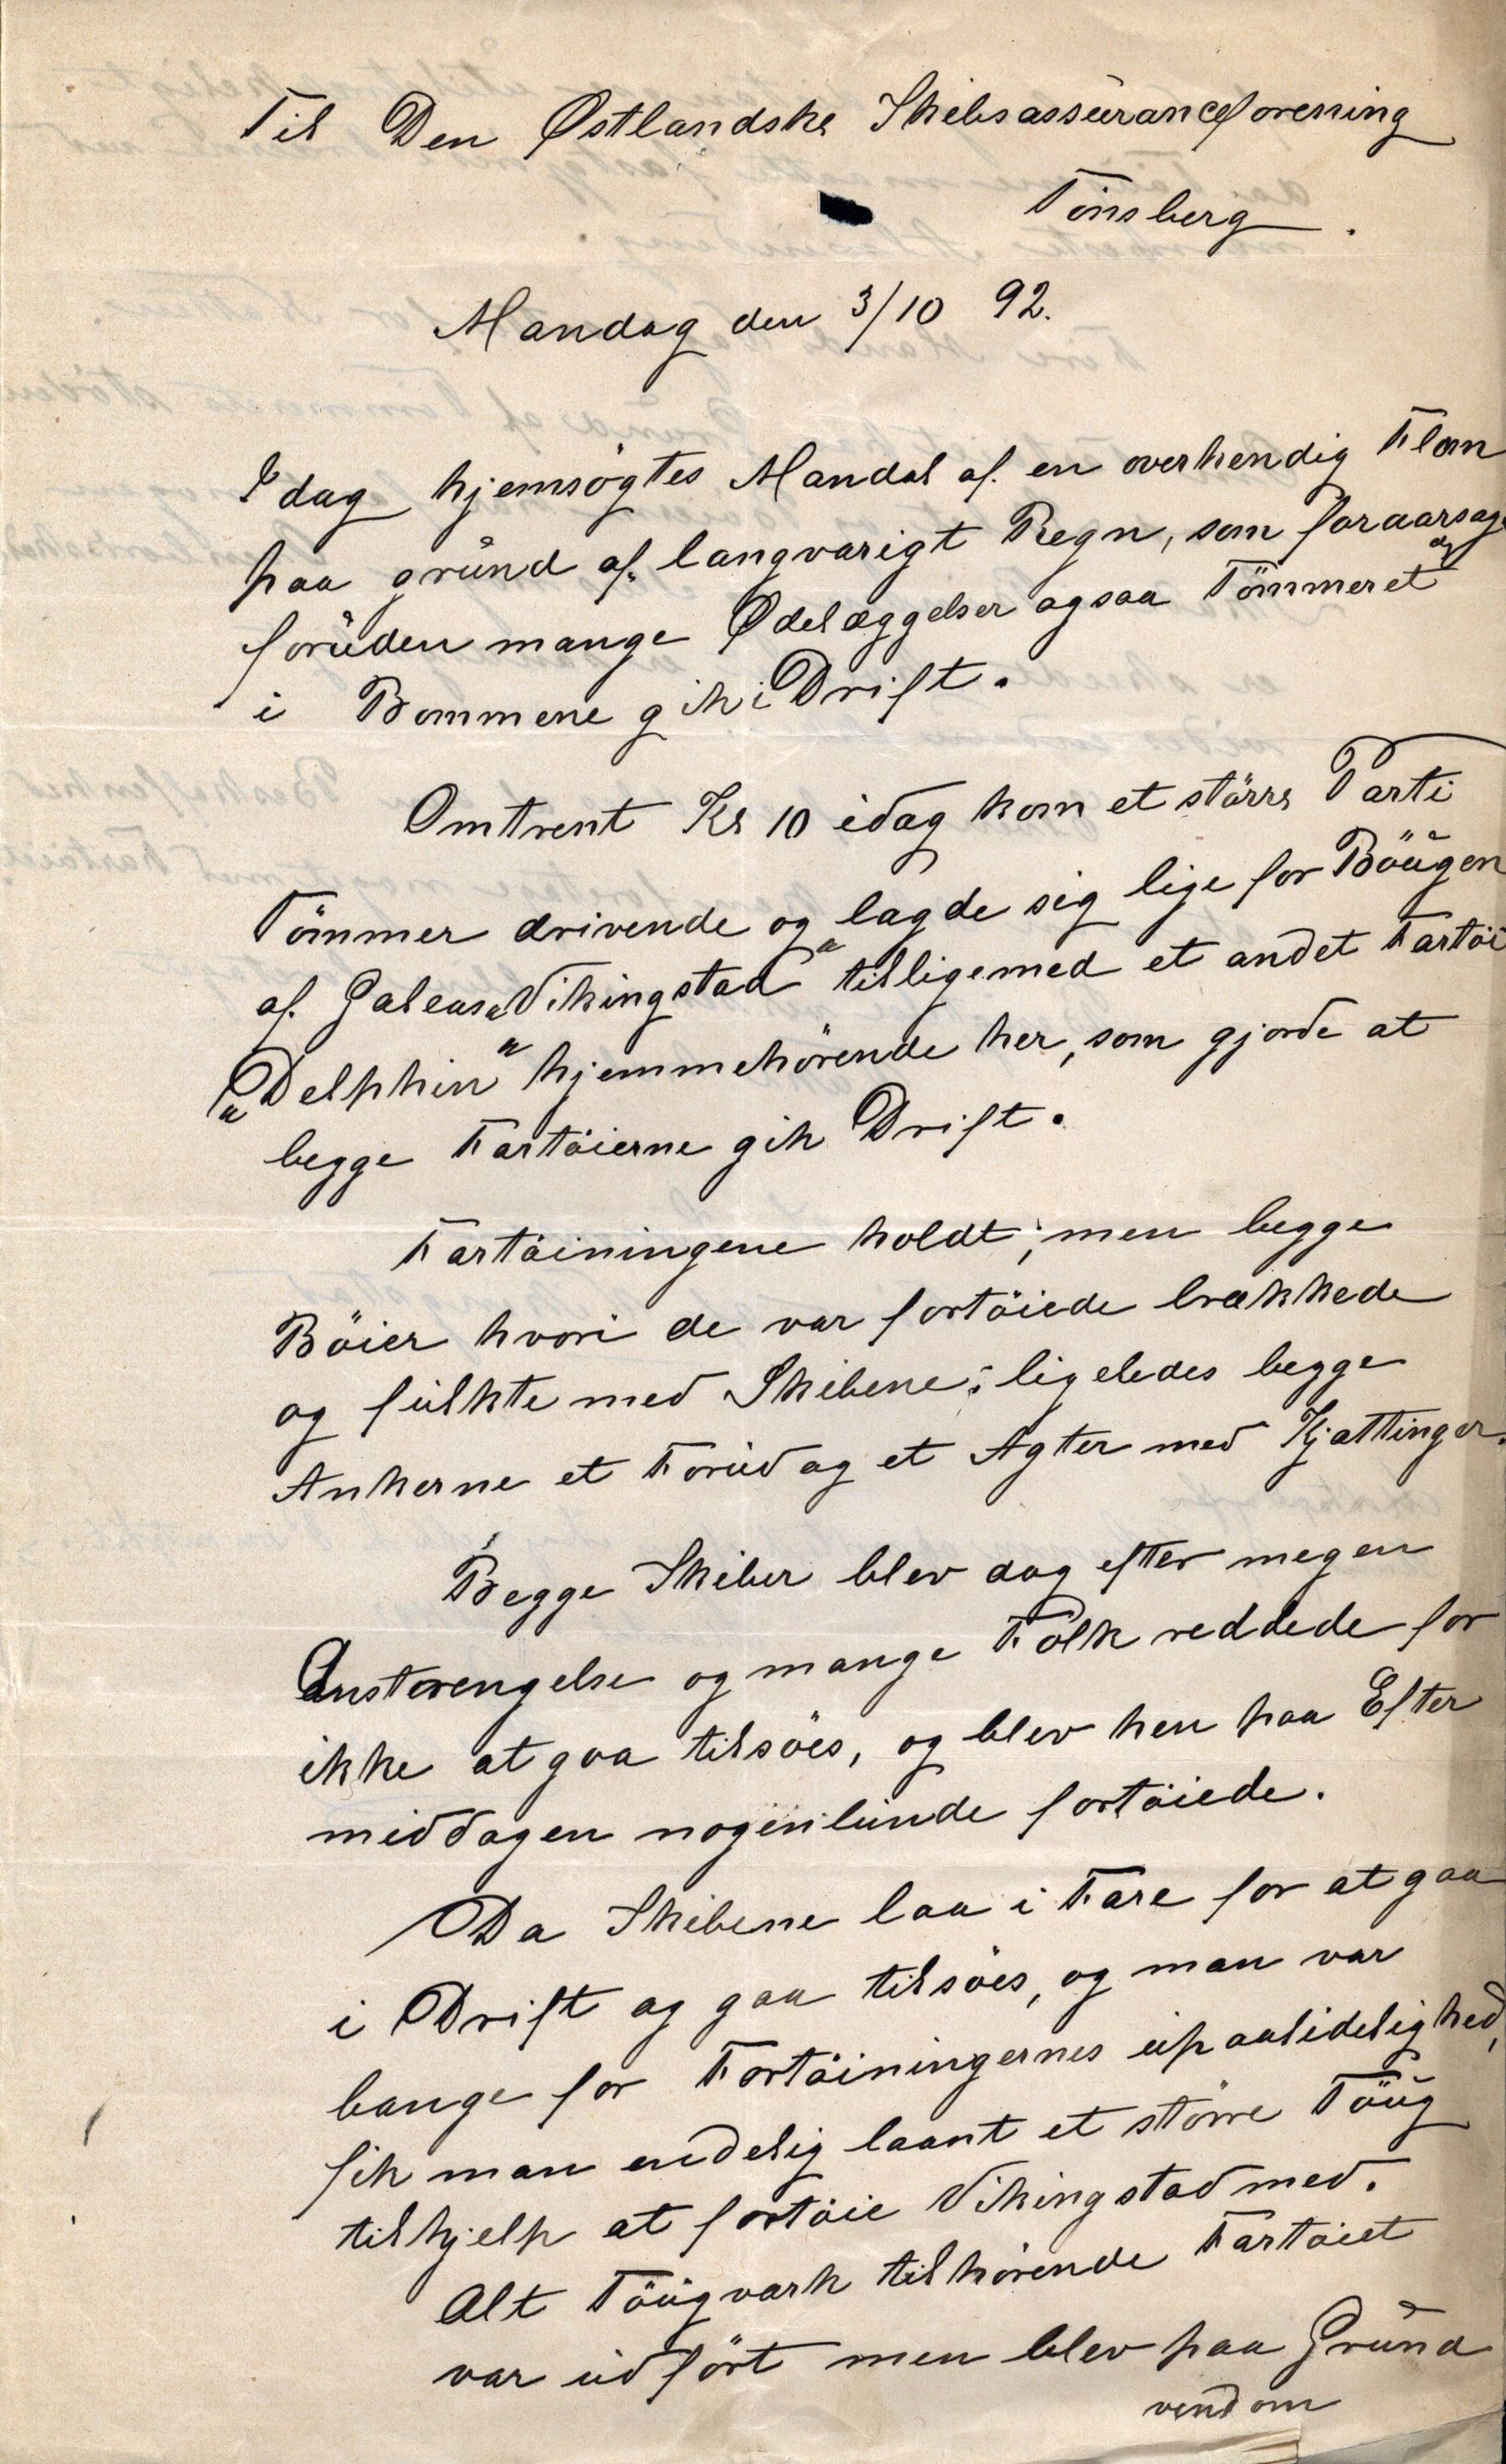 Til Den Østlandske Skibsassüranceforening
Tönsberg.
Mandag den 3/10 92.
Idag hjemsögtes Mandal af. en overhendig Flom
paa gründ af. langvarigt Regn, som foraarsag
forüden mange Ødelæggelser ogsaa Tömmeret
i Bommene gik i Drift.
Omtrent Kl 10 idag kom et större Parti
Tömmer drivende og lagde sig lige for Böügen
af. Galeas "Vikingstad" tilligemed et andet Fartöi
"Delphin" hjemmehörende her, som gjorde at
begge Fartöierne gik Drift.
Fartöiningene holdt; men begge
Böier hvori de var fortöiede brækkede
og fülkte med Skibene; ligeledes begge
Ankerne et Forüd og et Agter med Kjættinger.
Begge Skiber blev dog efter megen
Anstrengelse og mange Folk reddede for
ikke at gaa tilsöes, og blev hen paa Efter
middagen nogenlünde fortöiede.
Da Skibene laa i Fare for at gaa
i Drift og gaa tilsöes, og man var
bange for Fortöiningernes üpaalidelighed,
fik man endelig laant et större Töüg
tilhjelp at fortöie Vikingstad med.
Alt Töügværk tilhörende Fartöiet
var üdfört men blev paa Gründ
vend om